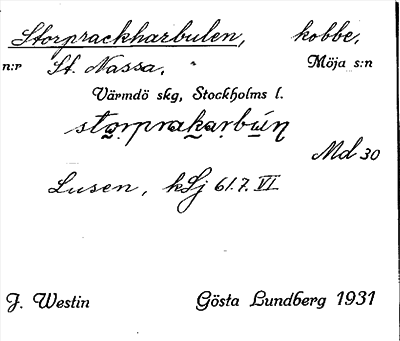 Storprackharbulen, kobbe,
n:r St. Nassa. Möja s:n
Värmdö skg, Stockholms l.
storprakarbún
Md 30
Lusen, kLj 61.7. VI
J. Westin Gösta Lundberg 1931